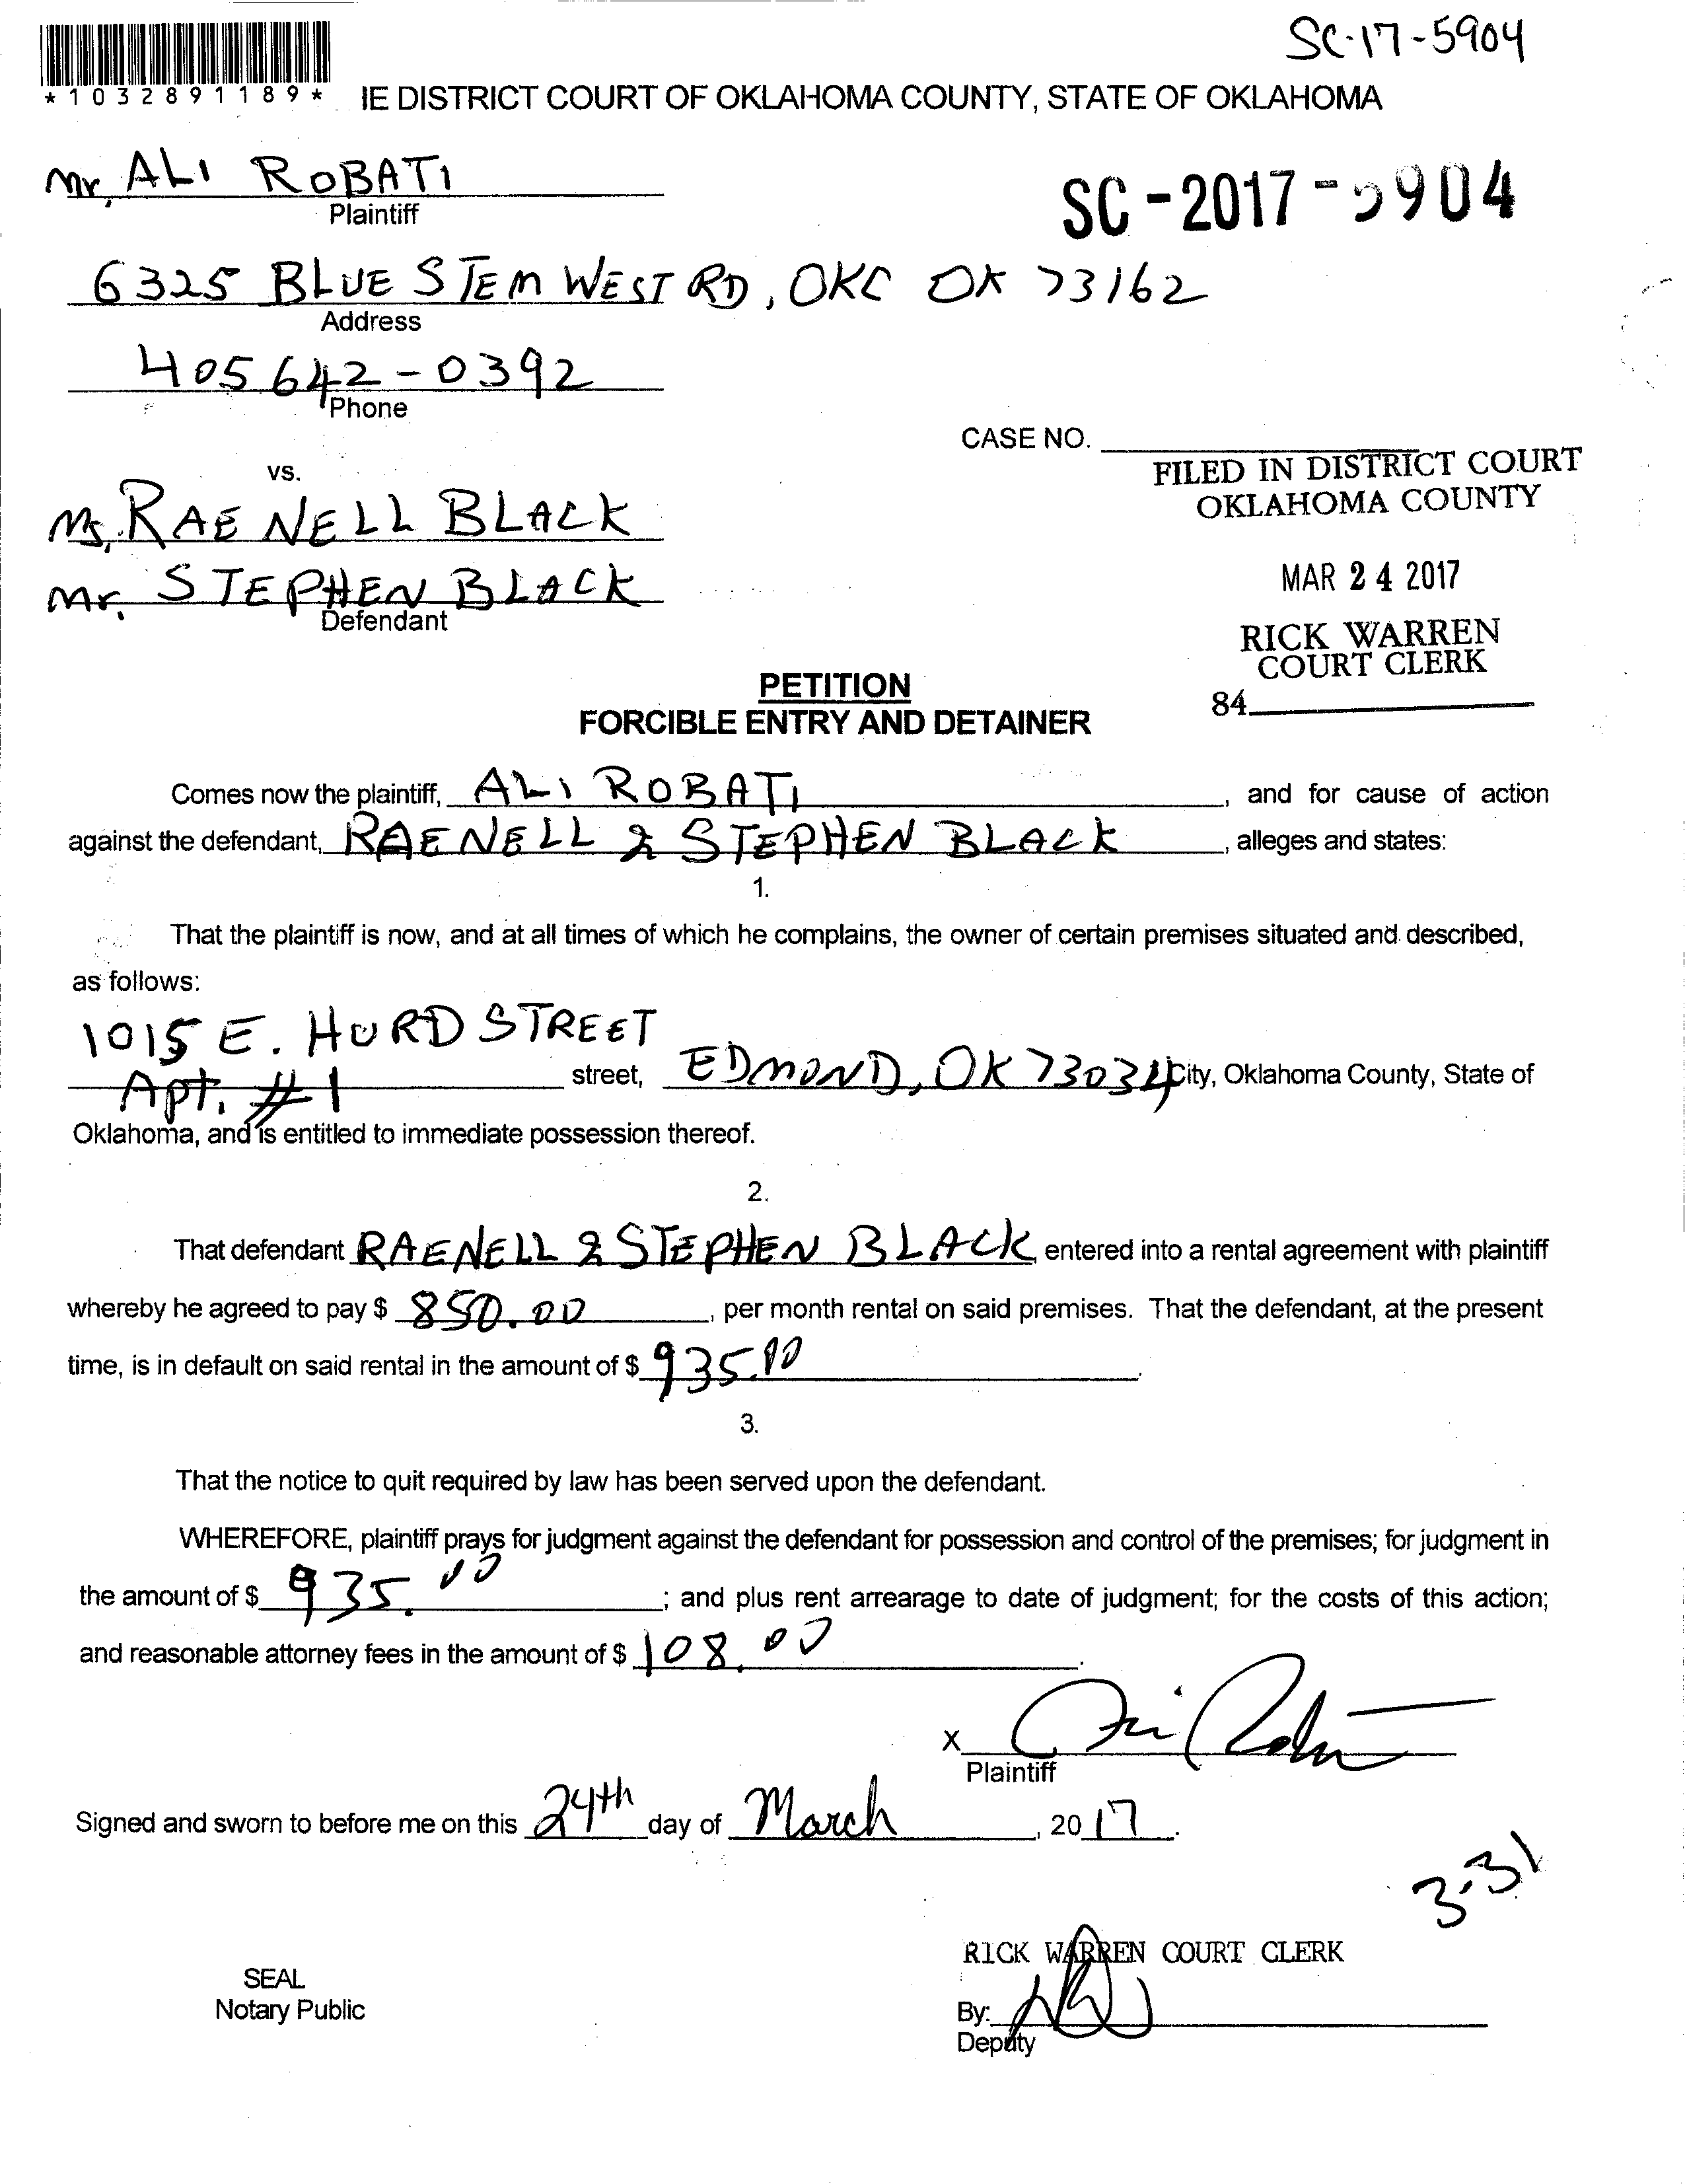 SC-17-5904
*1032891189*
IE DISTRICT COURT OF OKLAHOMA COUNTY, STATE OF OKLAHOMA
Mr, ALI ROBATI
Plaintiff
SC-2017-5904
6325 BLUE STEM WEST RD, OKC OK 73162
Address
405 642-0392
Phone
CASE NO.
vs.
FILED IN DISTRICT COURT
OKLAHOMA COUNTY
Ms, RAE NELL BLACK
MAR 24 2017
Mr. STEPHEN BLACK
Defendant
RICK WARREN
COURT CLERK
84
PETITION
FORCIBLE ENTRY AND DETAINER
Comes now the plaintiff, ALI ROBATI, and for cause of action
against the defendant, RAE NELL & STEPHEN BLACK, alleges and states:
1.
That the plaintiff is now, and at all times of which he complains, the owner of certain premises situated and described,
as follows:
1015 E. HURD STREET
Apt. #1 street, EDMOND, OK 73034 City, Oklahoma County, State of
Oklahoma, and is entitled to immediate possession thereof.
2.
That defendant RAENELL & STEPHEN BLACK entered into a rental agreement with plaintiff
whereby he agreed to pay $ 850.00, per month rental on said premises. That the defendant, at the present
time, is in default on said rental in the amount of $ 935.00.
3.
That the notice to quit required by law has been served upon the defendant.
WHEREFORE, plaintiff prays for judgment against the defendant for possession and control of the premises; for judgment in
the amount of $ 935.00; and plus rent arrearage to date of judgment; for the costs of this action;
and reasonable attorney fees in the amount of $ 108.00.
X
Plaintiff
Signed and sworn to before me on this 24th day of March, 2017.
3-31
RICK WARREN COURT CLERK
SEAL
Notary Public
By:
Deputy